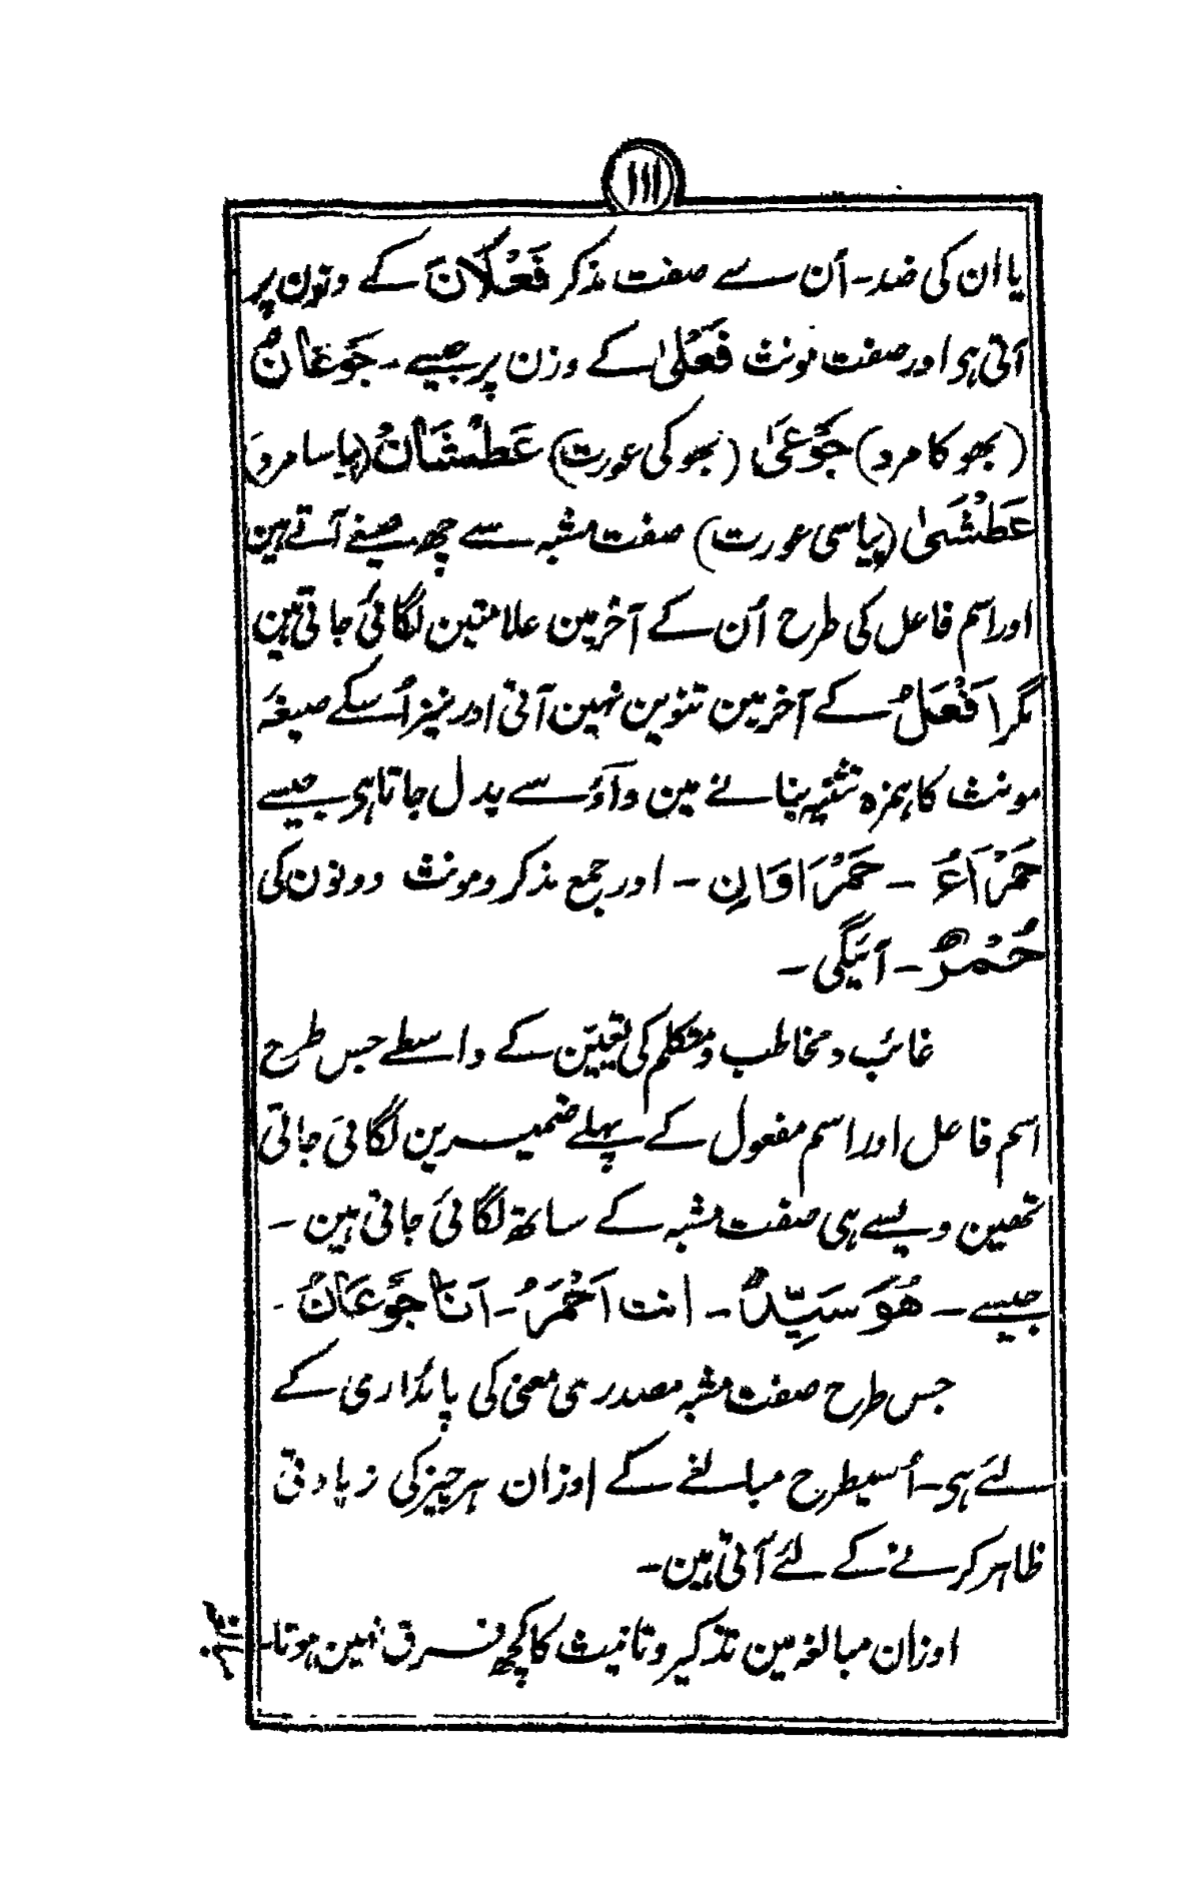 ۱۱۱
یا ان کی ضد۔ اُن سے صفت مذکر فَعْلَانَ کے وزن پر
آتی ہو اور صفت مونث فَعْلیٰ کے وزن پر جیسے۔ جَوْعَانٌ
(بھوکا مرد) جَوْعیٰ (بھوکی عورت) عَطْشَانُ (پیاسا مرد)
عَطْشَیٰ (پیاسی عورت) صفت مشبہ سے چھ صیغے آتے ہین
اور اسم فاعل کی طرح اُن کے آخر مین علامتین لگائی جاتی ہین
مگر اَفْعَلُ کے آخر مین تنوین نہین آتی اور نیز اُسکے صیغہ
مونث کا ہمزہ تثنیہ بنانے مین واؤ سے بدل جاتا ہی جیسے
حَمْرَاءُ ۔ حَمْرَاوَانِ ۔ اور جمع مذکر و مونث دونون کی
حُمْرٌ ۔ آئیگی ۔
غائب و مخاطب و متکلم کی تعیین کے واسطے جس طرح
اسم فاعل اور اسم مفعول کے پہلے ضمیرین لگائی جاتی
تھین ویسے ہی صفت مشبہ کے ساتھ لگائی جاتی ہین ۔
جیسے ۔ ھُوَ سَیِّدٌ ۔ انت اَحْمَرُ ۔ اَنَا جَوْعَانُ ۔
جس طرح صفت مشبہ مصدری معنی کی پائداری کے
لئے ہی۔ اُسیطرح مبالغے کے اوزان ہر چیز کی زیادتی
ظاہر کرنے کے لئے آتی ہین۔
اوزان مبالغہ مین تذکیر و تانیث کا کچھ فرق نہین ہوتا۔